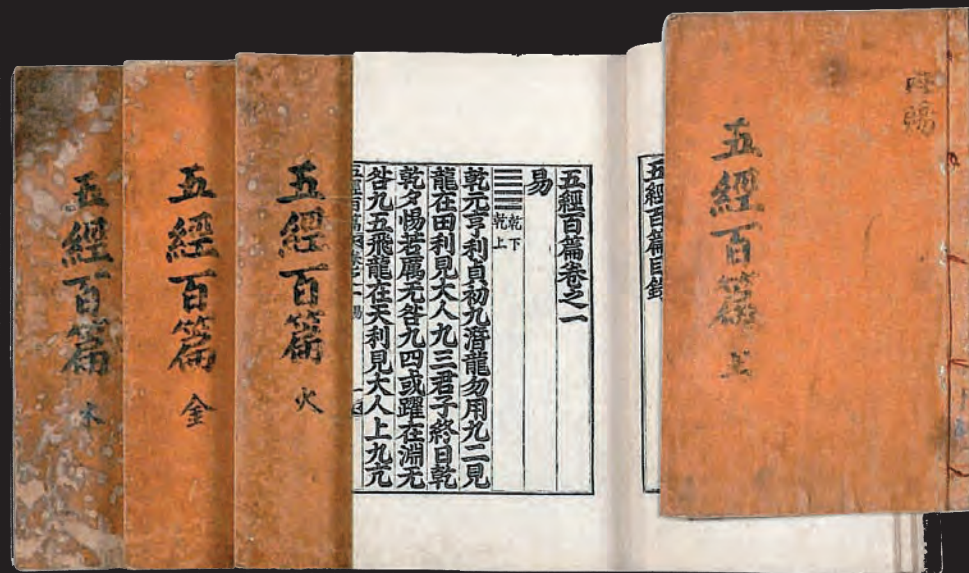 內賜
五經百篇 土
五經百篇目錄
五經百篇卷之一
易
乾下
乾上
乾元亨利貞初九潛龍勿用九二見
龍在田利見大人九三君子終日乾
乾夕惕若厲无咎九四或躍在淵无
咎九五飛龍在天利見大人上九亢
五經百篇 卷之一 易 一
五經百篇 火
五經百篇 金
五經百篇